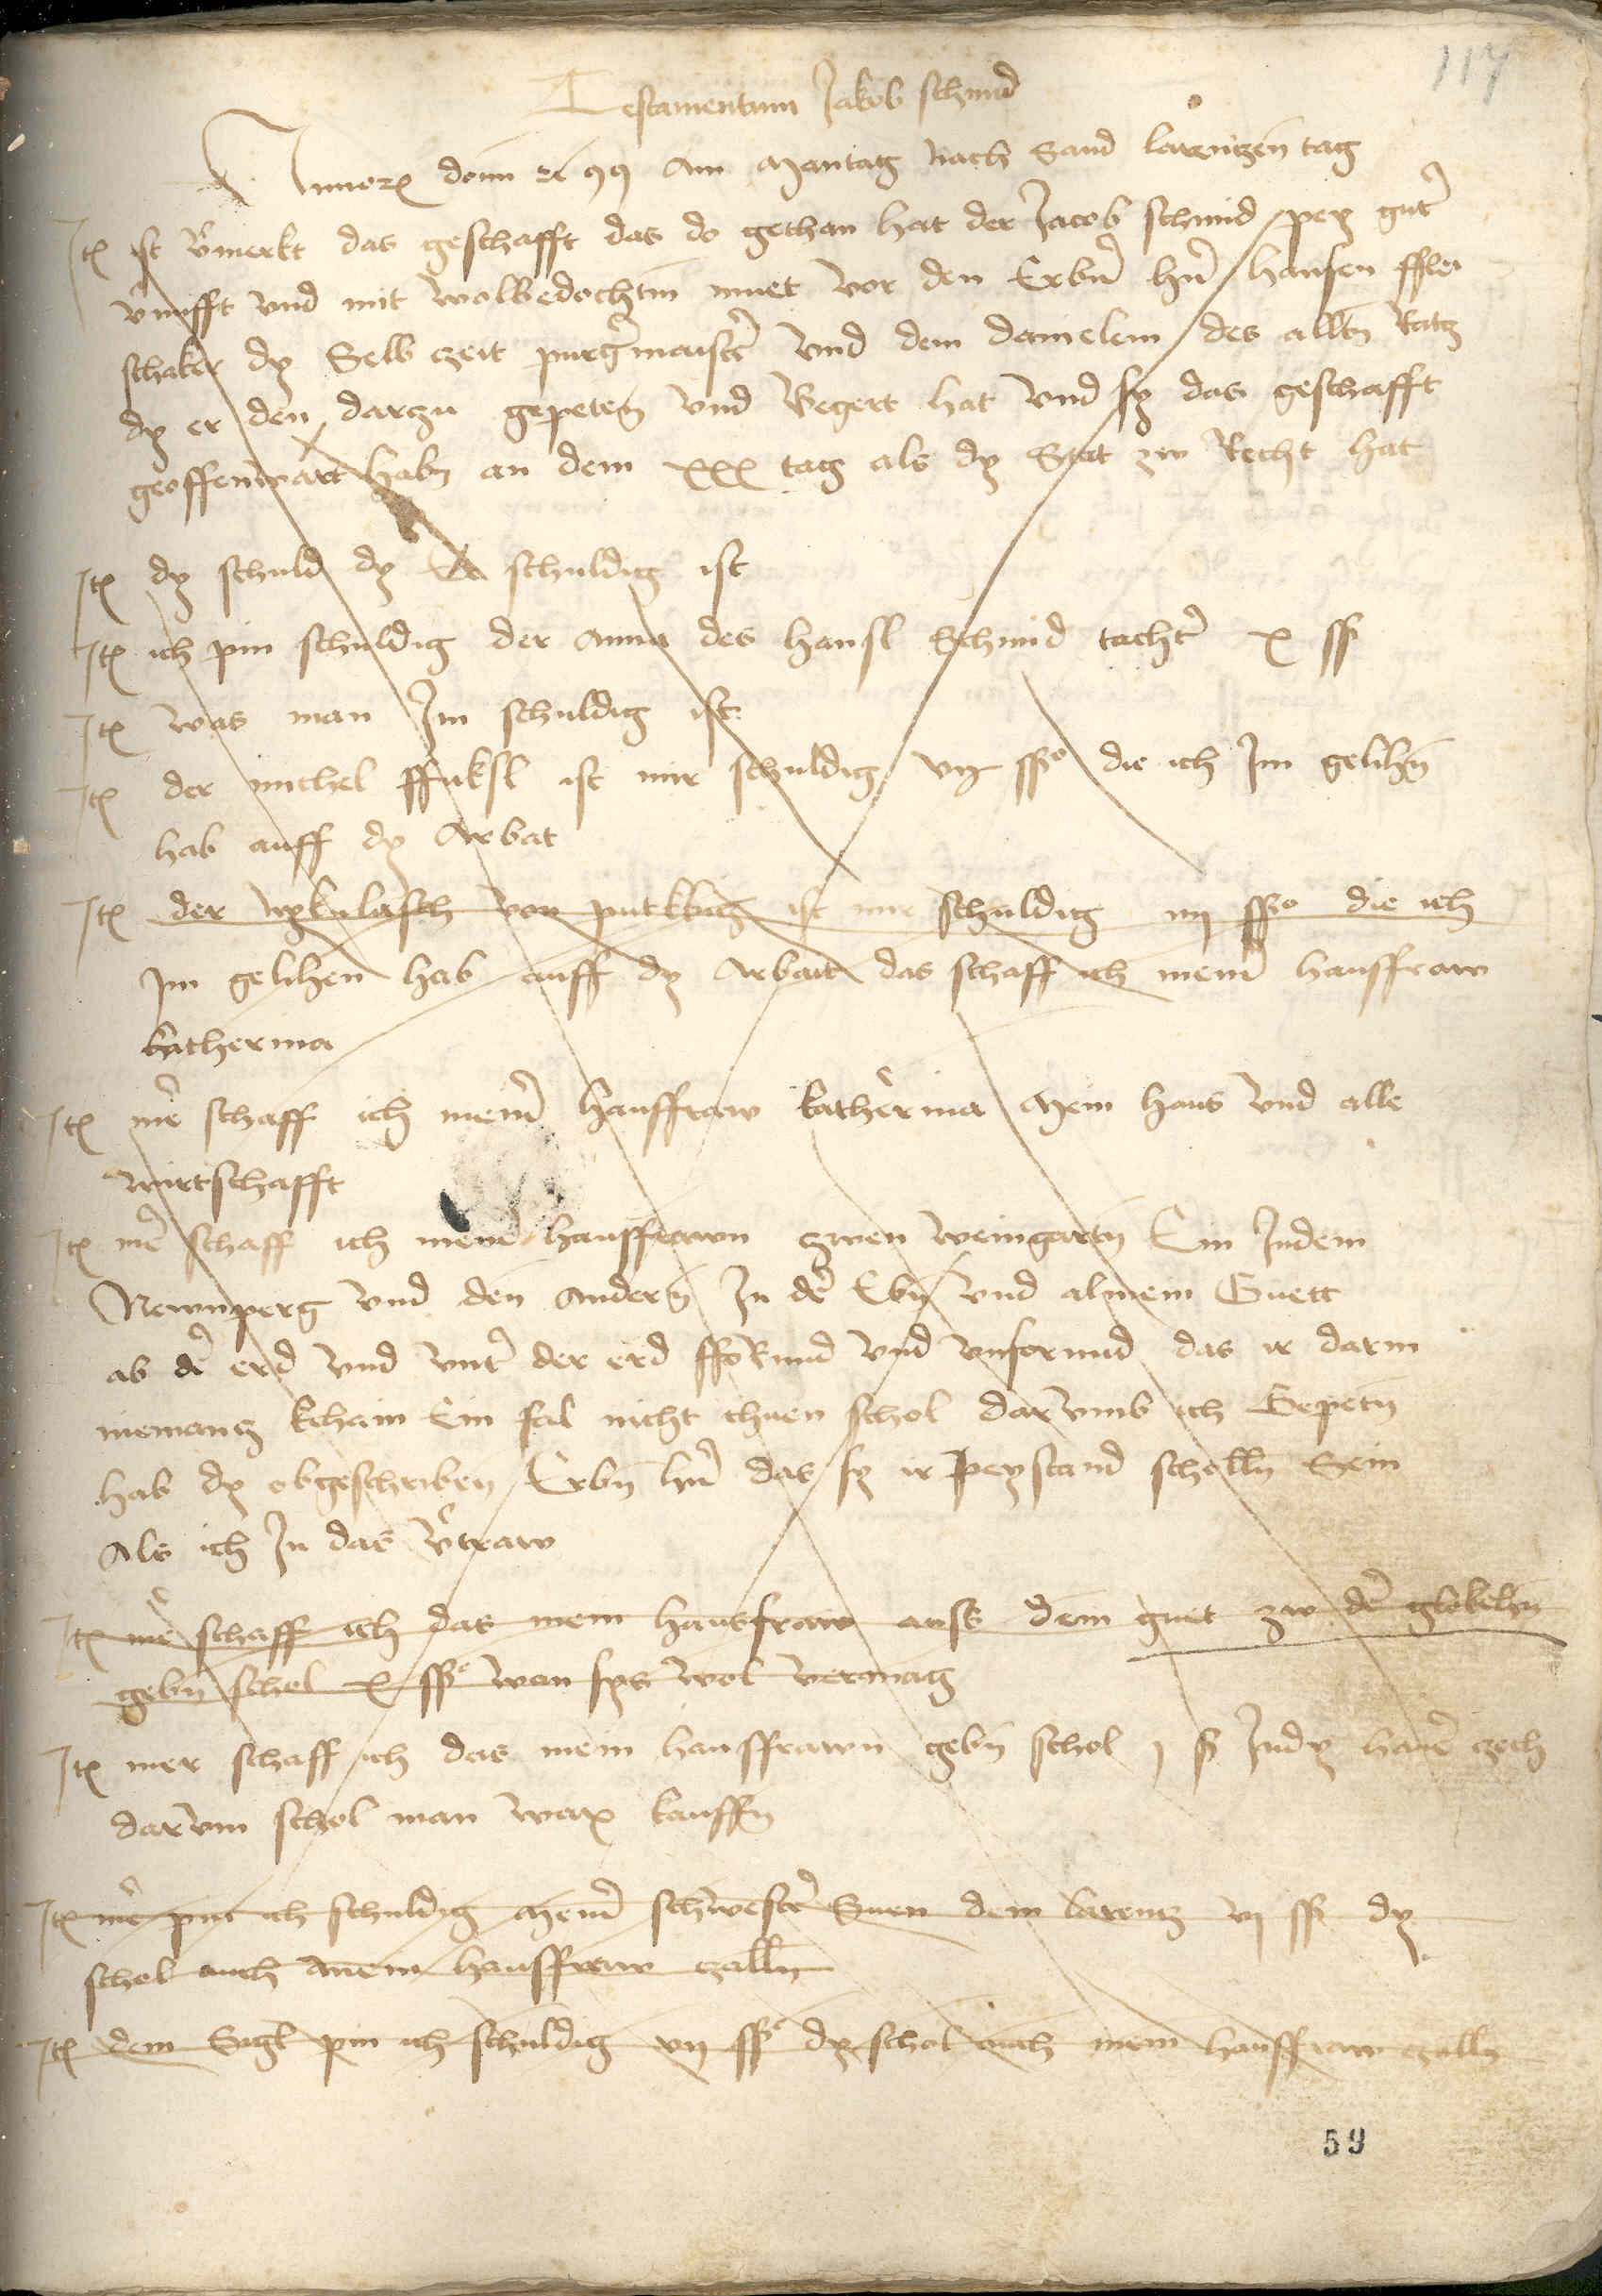 117
Testamentum Jakob schmid
Annorum domini etc 99 Am Mantag nach Sand larentzen tag
Item ist vermerkt das geschafft das do gethan hat der Jacob schmid pey guter
vernufft vnd mit wolbedochtem muet vor den Erbern hern hansen fflei
schaker dy Selb czeit purgermaister vnd dem damelem des alltn Ratz
dy er den darzu gepeten vnd Begert hat vnd sy das geschafft
geoffenwart habn an dem xxx tag als dy Stat zw Recht hat
Item dy schuld dy schuldig ist
Item ich pin schuldig der Anna des hansl Schmid tachter x ss
Item was man Im schuldig ist
Item der michel ffuksl ist mir schuldig vij ss die ich Im gelihen
hab auff dy Arbat
Item der von ist mir schuldig iij ss die ich
Im gelihen hab auff dy Arbait das schaff ich meiner hausfraw
katherina
Item mer schaff ich meiner hausfraw katherina Mein haus vnd alle
wirtschafft
Item mer schaff ich meiner hausfrawn zwen weingartn Ein Indem
Newnperg vnd den Andern In der Ebn vnd al mein Guett
ab der erd vnd vnter der erd fforund vnd vnforund das ir darin
niemantz kchain Ein fal nicht thuen schol darvmb ich Gepetn
hab dy obgeschriben Erbn hern das sy ir peystand scholln Sein
Als ich In das vertraw
Item mer schaff ich das mein hausfraw auss dem guet zw der glokchn
gebn schol x ss wan sys wol vermag
Item mer schaff ich das mein hausfrawn gebn schol j ss Indy hauer czech
darvm schol man wax kauffn
Item mer pin ich schuldig Meiner schwester Suen dem larentz vj ss dy
schol auch mein hausfraw czalln
Item dem Sigl pin ich schuldig vij ss dy schol auch mein hausfraw czalln
59